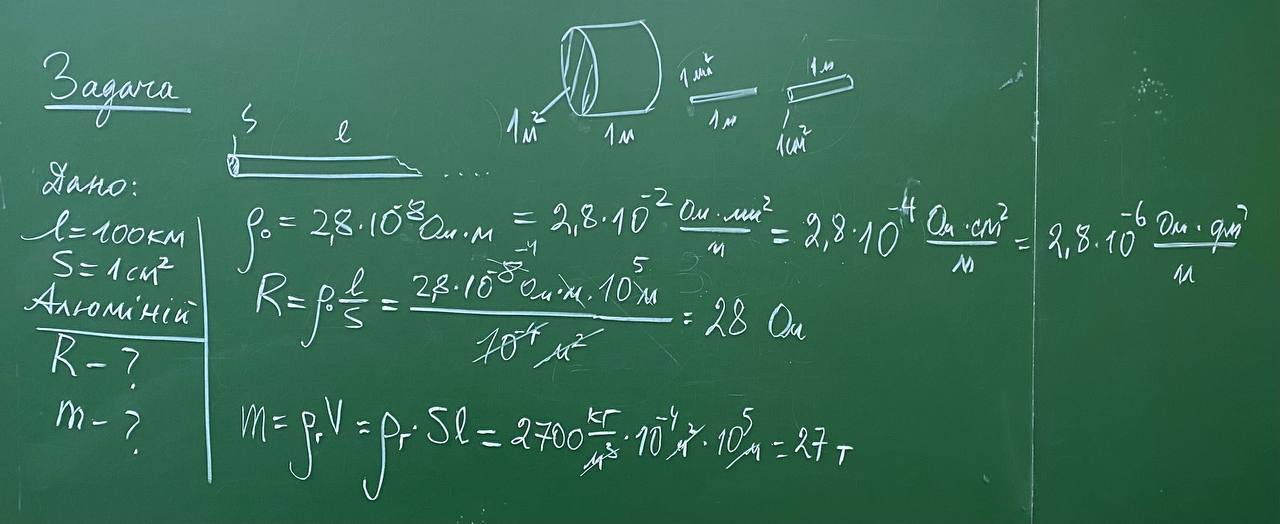 Задача
1м² 1м
1мм² 1м
1м 1см²
S l
Дано:
l = 100км
S = 1см²
Алюміній
R - ?
m - ?
ρ₀ = 2,8·10⁻⁸ Ом·м = 2,8·10⁻² Ом·мм²/м = 2,8·10⁻⁴ Ом·см²/м = 2,8·10⁻⁶ Ом·дм²/м
R = ρ₀ l/S = 2,8·10⁻⁸ Ом·м·10⁵м / 10⁻⁴ м² = 28 Ом
m = ρᵣV = ρᵣ·Sl = 2700 кг/м³ · 10⁻⁴ м² · 10⁵ м = 27 т